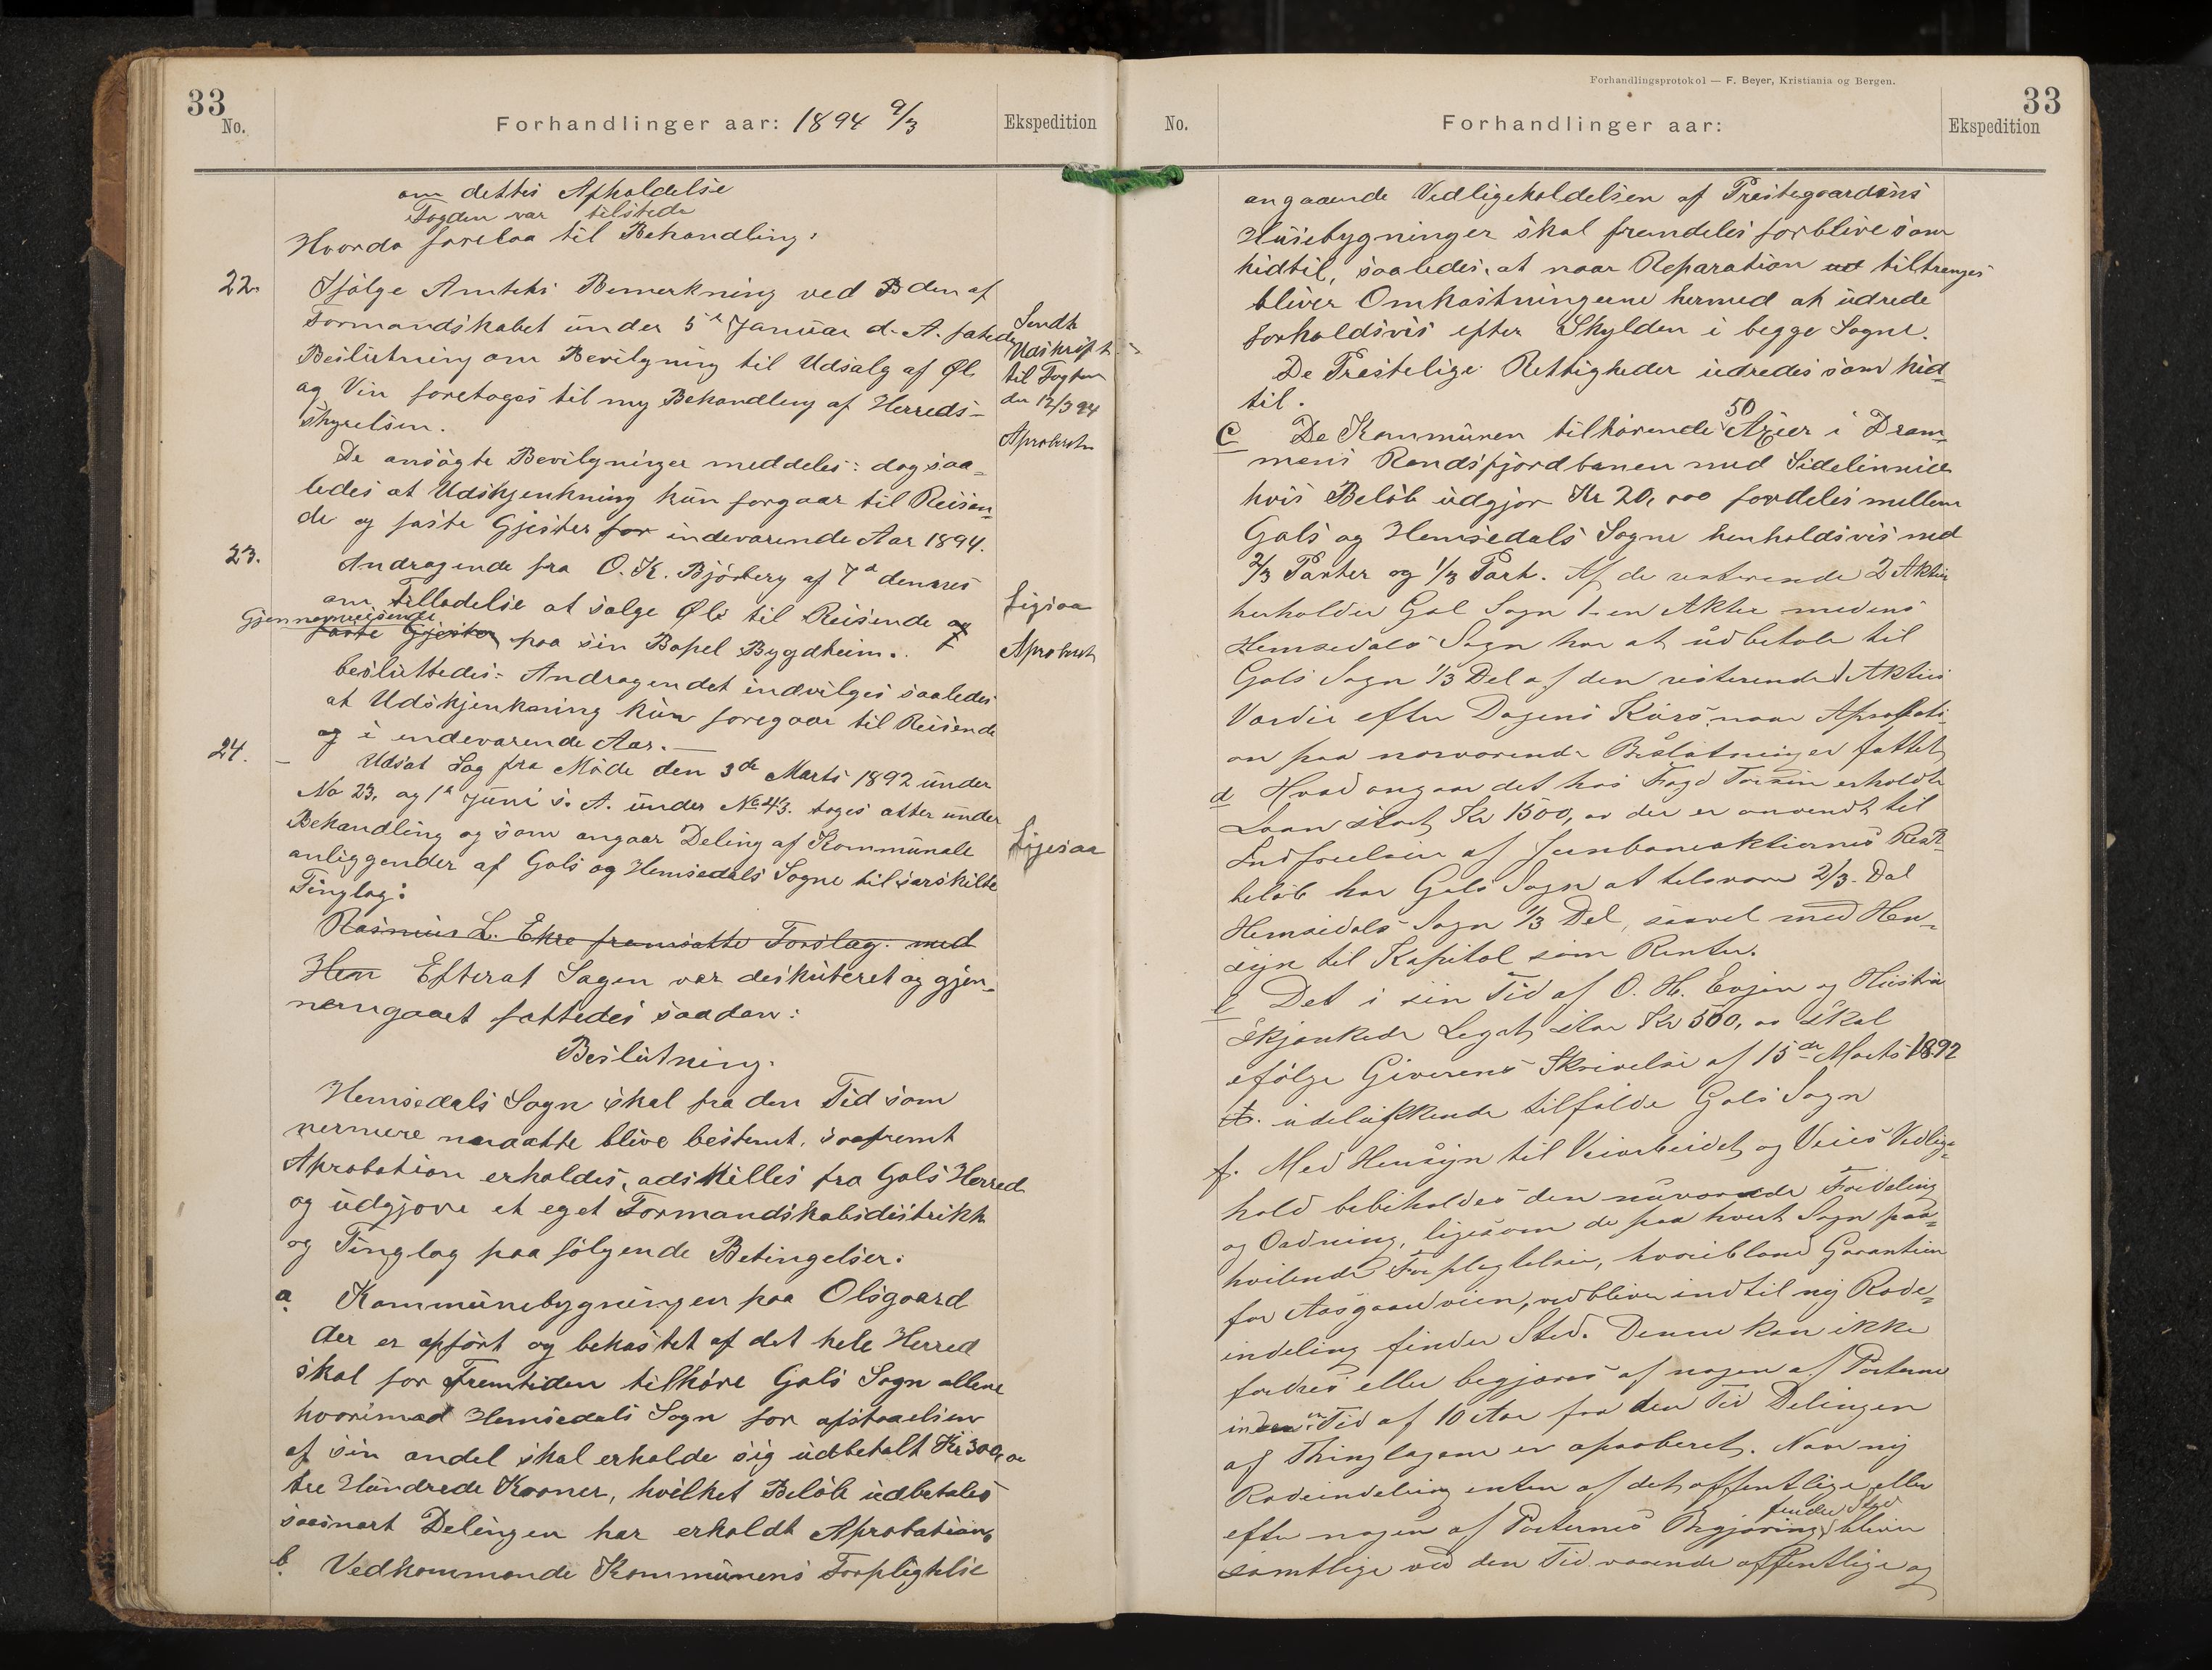 33
No.
Forhandlinger aar: 1894 9/3
Ekspedition
om dettes Afholdelse
Fogden var tilstede
Hvorda forelaa til Behandling:
22. Ifølge Amtets Bemerkning ved den af
Formandskabet under 5te Januar d. A. fatede
Beslutning om Bevilgning til Udsalg af Øl
og Vin foretages til ny Behandling af Herreds-
styrelsen.
Sendt
Udskrift
til Fogten
den 12/3 94
Aprobert
De ansøgte Bevilgninger meddeles: dog saa-
ledes at Udskjenkning kun forgaar til Reisen-
de og faste Gjester for indeværende Aar 1894.
23. Andragende fra O. K. Bjørberg af 7d dennes
om Tilladelse at salge Øl til Reisende og
Gjennemreisende
faste Gjester paa sin Bopel Bygdheim.
Ligesaa
Aprobert
besluttedes: Andragendet indvilges saaledes
at Udskjenkning kun foregaar til Reisende
og i indeværende Aar. —
24. — Udsat Sag fra Møde den 3de Marts 1892 under
No 23, og 1te Juni s. A. under No 43. toges atter under
Behandling og som angaar Deling af Kommunale
anliggender af Gols og Hemsedals Sogne til særskilte
Tinglag:
Ligesaa
Rasmus L. Ekre fremsatte Forslag. med
Hen Efterat Sagen var deskuteret og gjen-
nemgaaet fattedes saadan:
Beslutning.
Hemsedals Sogn skal fra den Tid som
nermere maatte blive bestemt, saafremt
Aprobation erholdes, adskilles fra Gols Herred
og udgjøre et eget Formandskabsdistrikt
og Tinglag paa følgende Betingelser:
a. Kommunebygningen paa Olsgaard
der er opført og bekostet af det hele Herred
skal for Fremtiden tilhøre Gols Sogn allene
hvorimod Hemsedals Sogn for afstaaelsen
af sin andel skal erholde sig udbetalt Kr 300,00
tre Hundrede Kroner, hvilket Beløb udbetales
saasnart Delingen har erholdt Aprobation
b. Vedkommende Kommunens Forpligtelse
Forhandlingsprotokol — F. Beyer, Kristiania og Bergen.
33
No.
Forhandlinger aar:
Ekspedition
angaaende Vedligeholdelsen af Prestegaardens
Husebygninger skal fremdeles forblive som
hidtil, saaledes, at naar Reparation ud tiltrenges
bliver Omkostningerne hermed at udrede
forholdsvis efter Skylden i begge Sogne.
De Prestelige Rettigheder udredes som hid-
til.
50
c De Kommunen tilhørende Axier i Dram-
mens Randsfjordbanen med Sidelinnier
hvis Beløb udgjør Kr 20,000 fordeles mellem
Gols og Hemsedals Sogne henholdsvis med
2/3 Parter og 1/3 Part. Af de resterende 2 Aktier
herholder Gol Sogn 1 en Aktie medens
Hemsedals Sogn har at udbetale til
Gols Sogn 1/3 Del af den resterende Akties
Værdie efter Dagens Kurs, naar Aprobati-
on paa nærværende Beslutninger fattet
d Hvad angaar det hos Fogd erholdte
Laan stort Kr 1500,00 der er anvendt til
Indfrielsen af Jernbaneaktiernes Rest-
beløb har Gols Sogn at tilsvare 2/3 Del
Hemsedals Sogn 1/3 Del, saavel med Hen-
syn til Kapital som Renter.
e Det i sin Tid af O. H. Evjen og Hustru
skjænkede Legat stor Kr 500,00 skal
efølge Giverens Skrivelse af 15de Marts 1892
udelukkende tilfalde Gols Sogn
f. Med Hensyn til Veiarbeidet og Veies Vedlige-
hold bebeholdes den nuværende Fordeling
og Ordning, ligesom de paa hvert Sogn paa-
hvilende Forpligtelser, hvoriblandt Garantien
for Aasgaardveien, vedbliver indtil ny Rode-
indeling finder Sted. Denne kan ikke
fordres eller begjæres af nogen af Parterne
inden en Tid af 10 Aar fra den Tid Delingen
af Thinglagene er aproberet. Naar ny
Rodeindeling enten af det offentlige eller
finder Sted
efter nogen af Parternes Begjæring bliver
samtlige ved den Tid værende offentlige og